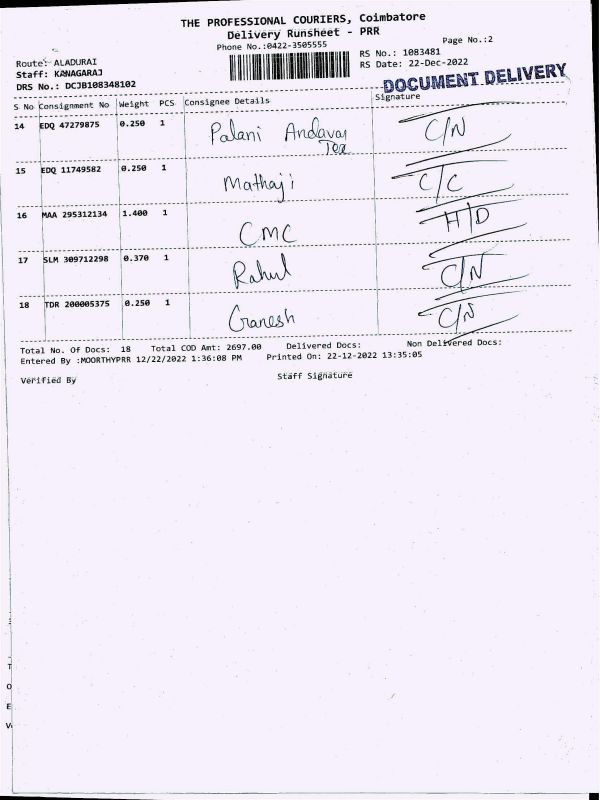 THE PROFESSIONAL COURIERS, Coimbatore
Delivery Runsheet - PRR
Phone No.:0422-3505555
Page No.:2
Route: ALADURAI
RS No.: 1083481
Staff: KANAGARAJ
RS Date: 22-Dec-2022
DRS No.: DCJB108348102
DOCUMENT DELIVERY
S No Consignment No Weight PCS Consignee Details Signature
14 EDQ 47279875 0.250 1 Palani Andavar C/N
Tex
15 EDQ 11749582 0.250 1 Mathaji C/C
16 MAA 295312134 1.400 1 CMC H/D
17 SLM 309712298 0.370 1 Rahul C/N
18 TDR 200005375 0.250 1 Ganesh C/N
Total No. Of Docs: 18 Total COD Amt: 2697.00 Delivered Docs: Non Delivered Docs:
Entered By :MOORTHYPRR 12/22/2022 1:36:08 PM Printed On: 22-12-2022 13:35:05
Verified By Staff Signature